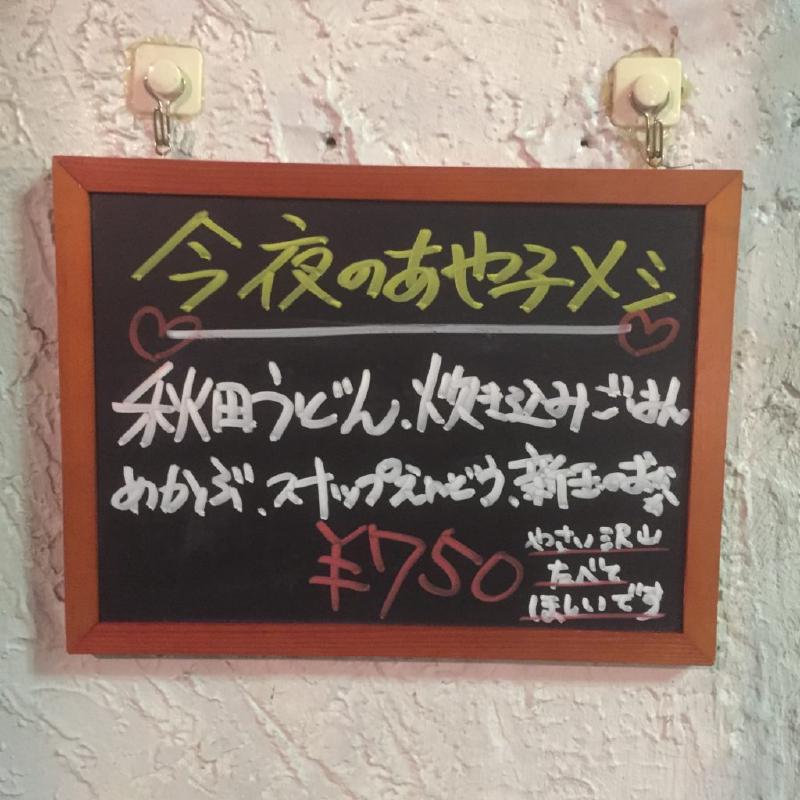 今夜のあや子メシ
秋田うどん、炊き込みごはん
めかぶ、スナップえんどう、新玉のおかか
¥750
やさい沢山
たべて
ほしいです